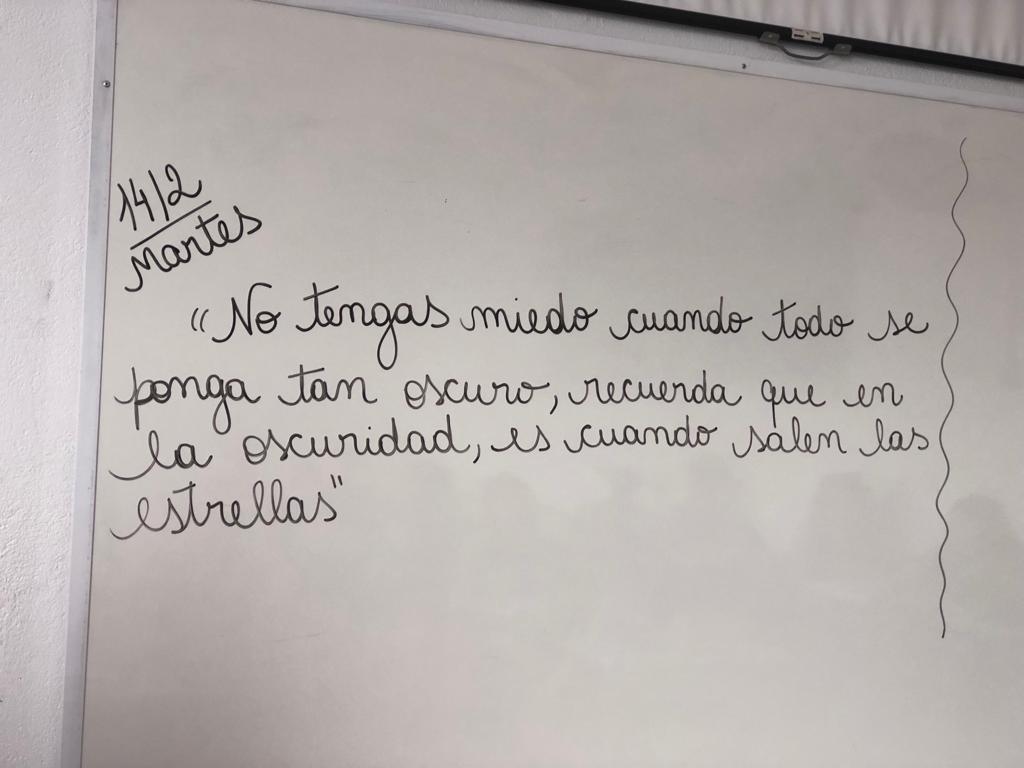 14/2
Martes
“No tengas miedo cuando todo se
ponga tan oscuro, recuerda que en
la oscuridad, es cuando salen las
estrellas"